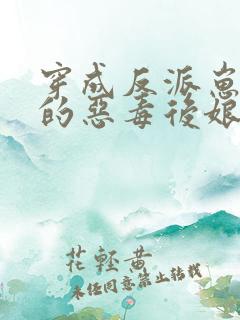 穿成反派崽
的惡毒後娘
花輕黃
未经同意禁止转载